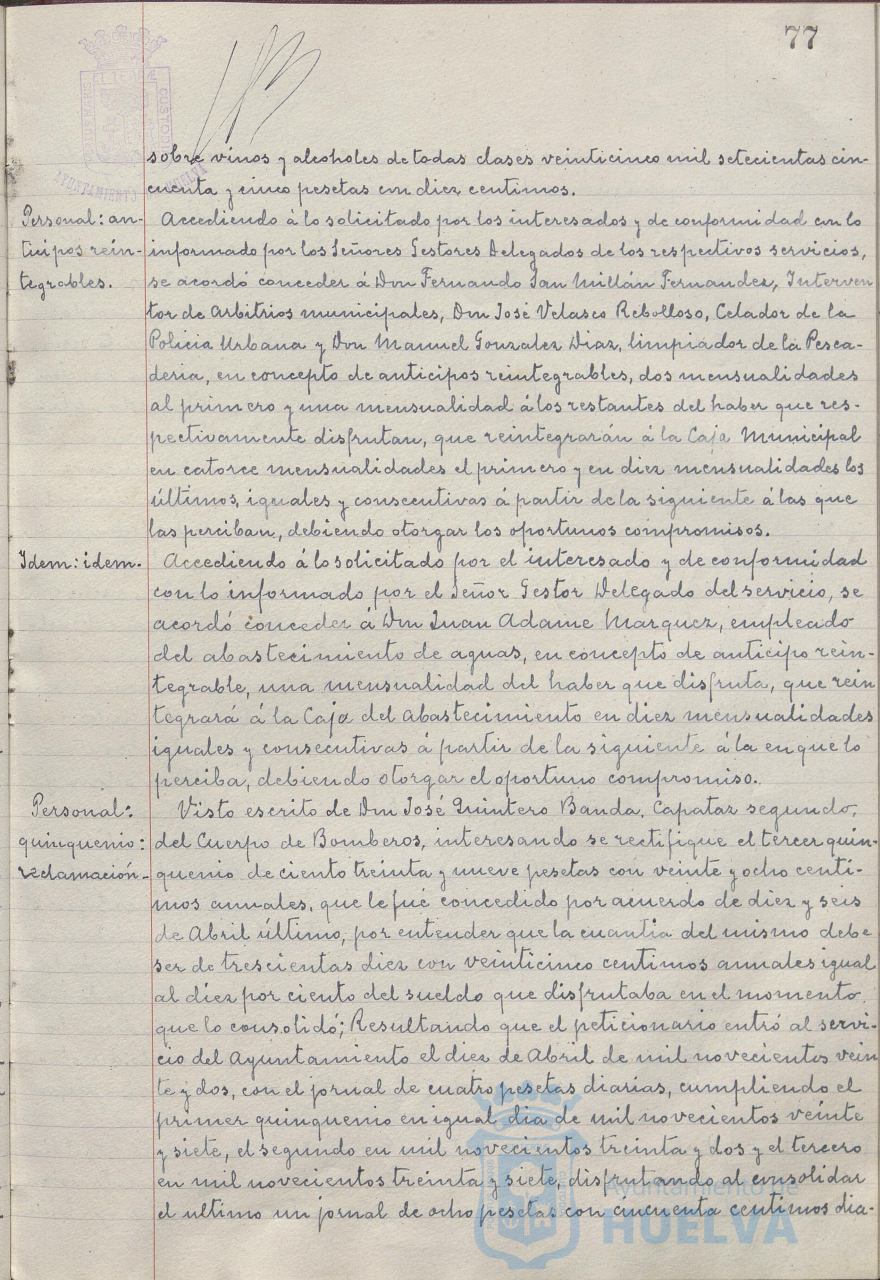 77
PORTUS MARIS
ET TERRÆ
CUSTODIA
AYUNTAMIENTO HUELVA
sobre vinos y alcoholes de todas clases veinticinco mil setecientas cin-
cuenta y cinco pesetas con diez centimos.
Personal: an-
ticipos rein-
tegrables.
Accediendo á lo solicitado por los interesados y de conformidad con lo
informado por los Señores Gestores Delegados de los respectivos servicios,
se acordó conceder á Don Fernando San Millán Fernandez, Interven
tor de Arbitrios municipales, Don José Velasco Rebolloso, Celador de la
Policia Urbana y Don Manuel Gonzalez Diaz, limpiador de la Pesca-
deria, en concepto de anticipos reintegrables, dos mensualidades
al primero y una mensualidad á los restantes del haber que res-
pectivamente disfrutan, que reintegrarán á la Caja Municipal
en catorce mensualidades el primero y en diez mensualidades los
últimos, iguales y consecutivas á partir de la siguiente á las que
las perciban, debiendo otorgar los oportunos compromisos.
Idem: idem.
Accediendo á lo solicitado por el interesado y de conformidad
con lo informado por el Señor Gestor Delegado del servicio, se
acordó conceder á Don Juan Adame Marquez, empleado
del abastecimiento de aguas, en concepto de anticipo rein-
tegrable, una mensualidad del haber que disfruta, que rein
tegrará á la Caja del Abastecimiento en diez mensualidades
iguales y consecutivas á partir de la siguiente á la en que lo
perciba, debiendo otorgar el oportuno compromiso.
Personal:
quinquenio:
reclamación-
Visto escrito de Don José Quintero Banda, Capataz segundo,
del Cuerpo de Bomberos, interesando se rectifique el tercer quin-
quenio de ciento treinta y nueve pesetas con veinte y ocho centi-
mos anuales, que le fué concedido por acuerdo de diez y seis
de Abril último, por entender que la cuantia del mismo debe
ser de trescientas diez con veinticinco centimos anuales igual
al diez por ciento del sueldo que disfrutaba en el momento
que lo consolidó; Resultando que el peticionario entró al servi-
cio del Ayuntamiento el diez de Abril de mil novecientos vein
te y dos, con el jornal de cuatro pesetas diarias, cumpliendo el
primer quinquenio en igual dia de mil novecientos veinte
y siete, el segundo en mil novecientos treinta y dos y el tercero
en mil novecientos treinta y siete, disfrutando al consolidar
el ultimo un jornal de ocho pesetas con cincuenta centimos dia-
Ayuntamiento de
HUELVA